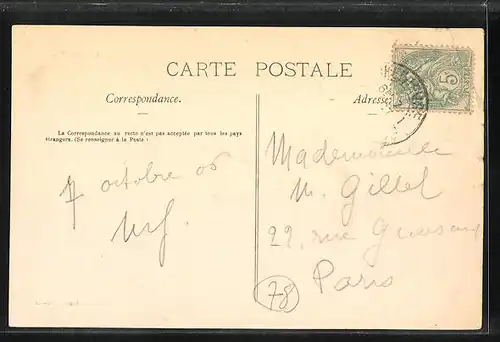 CARTE POSTALE
Correspondance.
Adresse
La Correspondance au recto n'est pas acceptée par tous les pays
étrangers. (Se renseigner à la Poste)
5
7 octobre 06
Mademoiselle
M. Gillet
22, rue
Paris
78